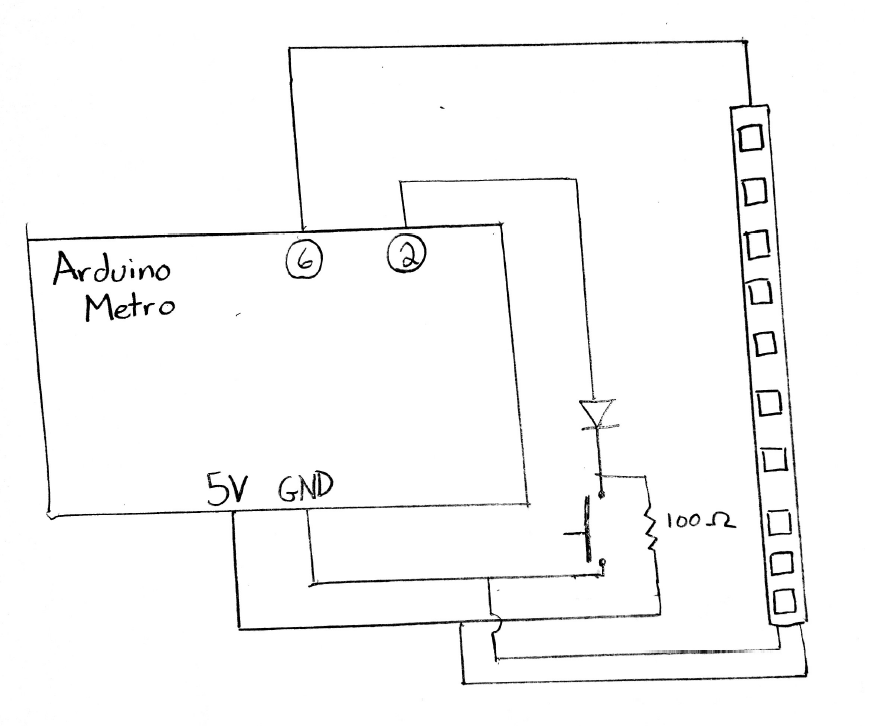 6
2
Arduino
Metro
5V
GND
100Ω